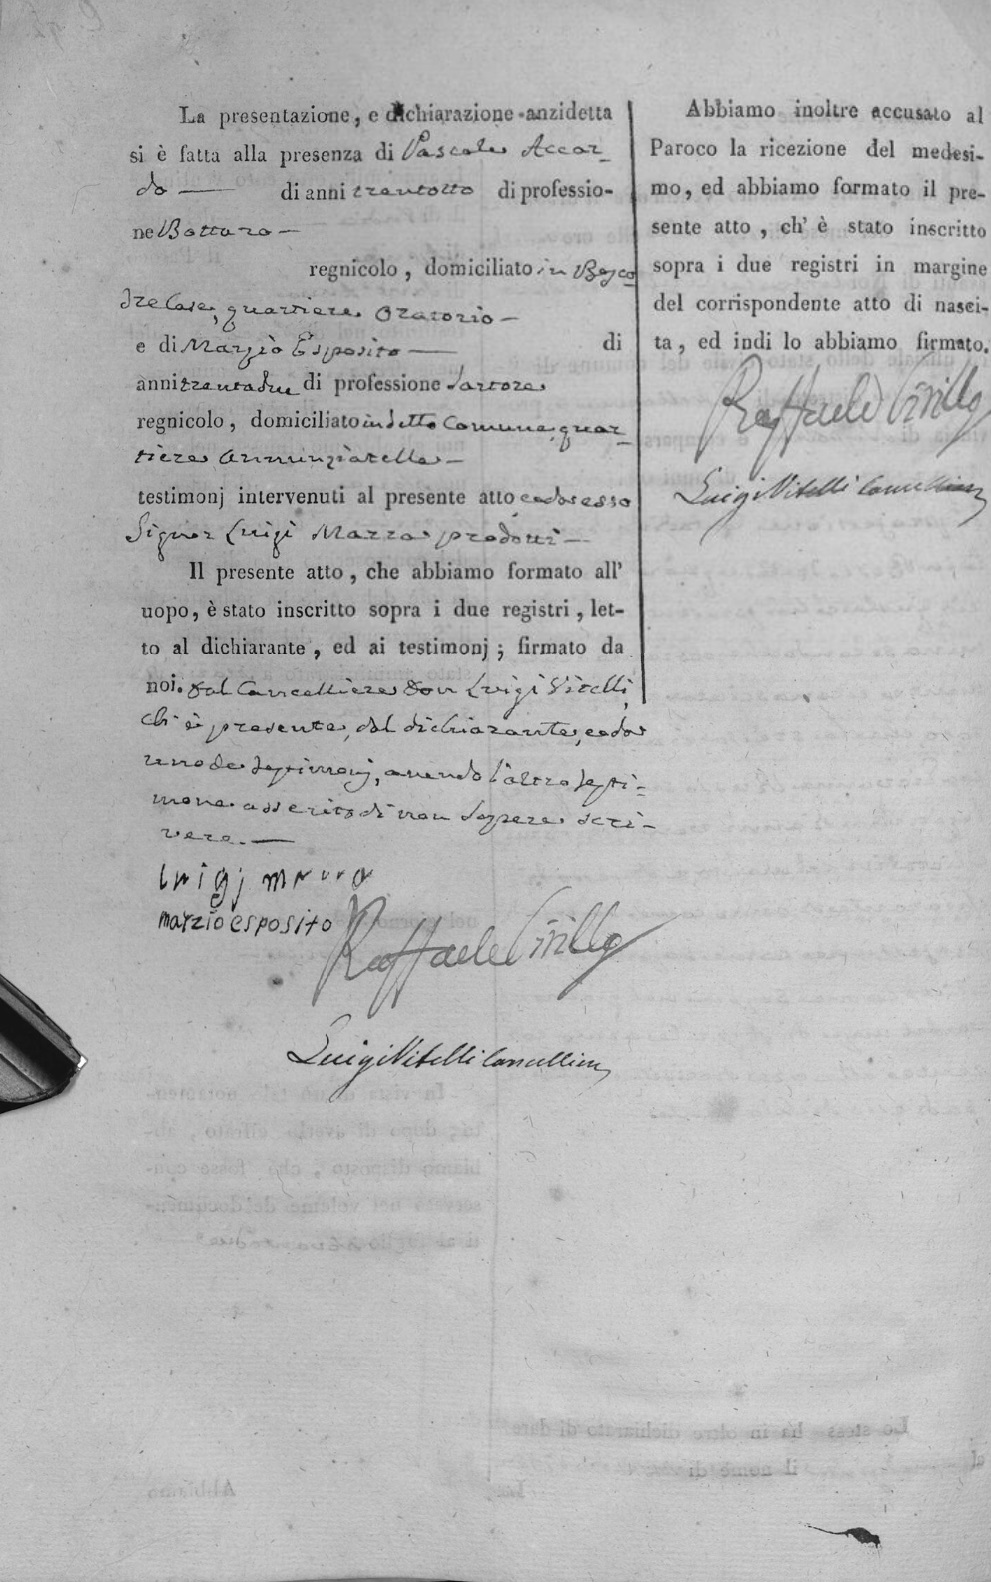 La presentazione, e dichiarazione anzidetta
si è fatta alla presenza di Pascale Accar_
do — di anni trentotto di professio-
ne Bottaro —
regnicolo, domiciliato in Bosco
tre Case, quartiere Oratorio —
e di Marzio Esposito — di
anni trentadue di professione Sartore
regnicolo, domiciliato in detto Comune, quar_
tiere Annunziatella —
testimonj intervenuti al presente atto e da esso
Signor Luigi Marra prodotti —
Il presente atto, che abbiamo formato all'
uopo, è stato inscritto sopra i due registri, let-
to al dichiarante, ed ai testimonj; firmato da
noi. dal Cancelliere Don Luigi Vitelli,
ch'è presente, dal dichiarante, e da
uno de testimonj, avendo l'altro testi=
mone asserito di non sapere scri-
vere. —
Luigj Marra
marzio esposito
Raffaele Cirillo
Luigi Vitelli Cancelliere
Abbiamo inoltre accusato al
Paroco la ricezione del medesi-
mo, ed abbiamo formato il pre-
sente atto, ch' è stato inscritto
sopra i due registri in margine
del corrispondente atto di nasci-
ta, ed indi lo abbiamo firmato.
Raffaele Cirillo
Luigi Vitelli Cancelliere